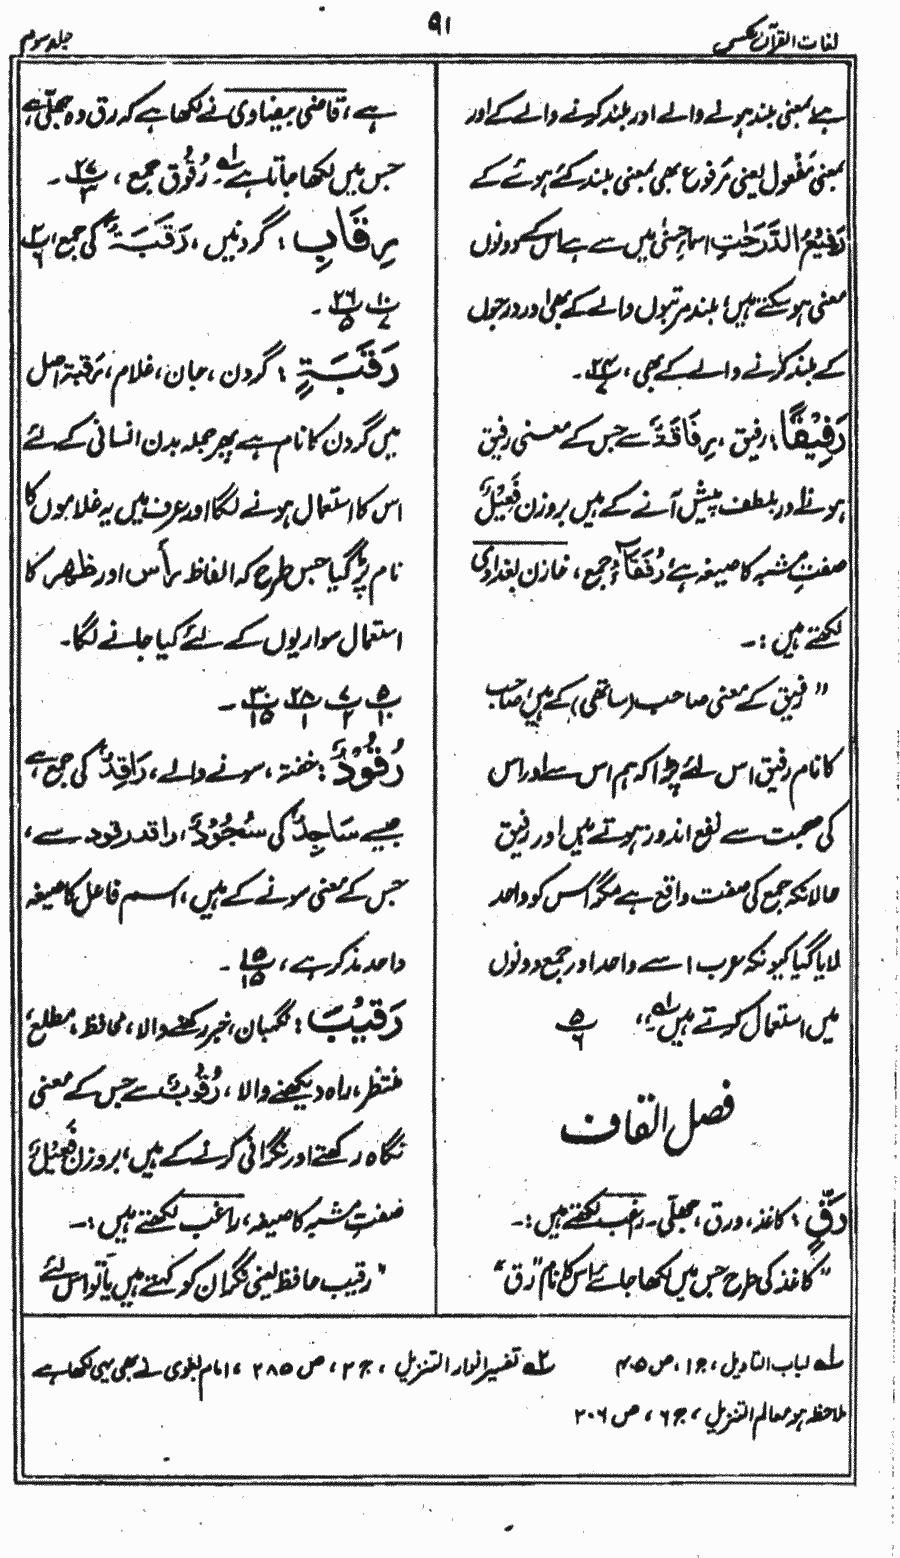 لغات القرآن مکمل
۹۱
جلد سوم
ہے بمعنی بلند ہونے والے اور بلند کرنے والے کے اور
بمعنی مَفْعُول یعنی مرفوع بھی بمعنی بلند کئے ہوئے کے
رَفِیْعُ الدَّرَجٰتِ اسماءِ حسنٰی میں سے ہے اس کے دونوں
معنی ہو سکتے ہیں؛ بلند مرتبوں والے کے بھی اور درجوں
کے بلند کرنے والے کے بھی، ۲۴/۷۔
رَفِیْقًا؛ رفیق، رِفَاقَۃٌ سے جس کے معنی رفیق
ہونے اور بلطف پیش آنے کے ہیں بروزن فَعِیْلٌ
صفتِ مشبہ کا صیغہ ہے رُفَقَآءُ جمع، خازن بغدادی
لکھتے ہیں :۔
" رفیق کے معنی صاحب (ساتھی) کے ہیں، صاحب
کا نام رفیق اس لئے پڑا کہ ہم اس سے اور اس
کی صحبت سے نفع اندوز ہوتے ہیں اور رفیق
حالانکہ جمع کی صفت واقع ہے مگر اس کو واحد
لایا گیا کیونکہ عرب اسے واحد اور جمع دونوں
میں استعمال کرتے ہیں۔" ؎۱، ۵/۶
فصل القاف
رَقٍّ : کاغذ، ورق، جھلّی۔ راغب لکھتے ہیں :۔
" کاغذ کی طرح جس میں لکھا جائے اس کا نام "رق"
ہے، قاضی بیضاوی نے لکھا ہے کہ رق وہ جھلّی ہے
جس میں لکھا جاتا ہے ؎۲۔ رُقُوْق جمع، ۲۷/۳۔
رِقَابِ : گردنیں، رَقَبَۃٌ کی جمع، ۲/۶
۱۰/۷ ۲۶/۵۔
رَقَبَۃٍ : گردن، جان، غلام، رَقَبَۃ اصل
میں گردن کا نام ہے پھر جملہ بدن انسانی کے لئے
اس کا استعمال ہونے لگا اور عرف میں یہ غلاموں کا
نام پڑ گیا جس طرح کہ الفاظ رأس اور ظھر کا
استعمال سواریوں کے لئے کیا جانے لگا۔
۵/۱۰ ۷/۲ ۲۸/۱ ۳۰/۱۵۔
رُقُوْدٌ : خفتہ، سونے والے، رَاقِدٌ کی جمع ہے
جیسے سَاجِدٌ کی سُجُوْدٌ، راقد رقود سے،
جس کے معنی سونے کے ہیں، اسم فاعل کا صیغہ
واحد مذکر ہے، ۱۵/۱۵۔
رَقِیْبٌ : نگہبان، خبر رکھنے والا، محافظ، مطلع،
منتظر، راہ دیکھنے والا، رُقُوْبٌ سے جس کے معنی
نگاہ رکھتے اور نگرانی کرنے کے ہیں، بروزن فَعِیْلٌ
صفتِ مشبہ کا صیغہ، راغب لکھتے ہیں :۔
" رقیب حافظ یعنی نگران کو کہتے ہیں یا تو اس لئے
؎۱ لباب التاویل، ج۱، ص ۴۰۵
؎۲ تفسیر انوار التنزیل، ج۲، ص ۲۸۵، امام بغوی نے بھی یہی لکھا ہے
ملاحظہ ہو معالم التنزیل، ج۶، ص ۲۰۶